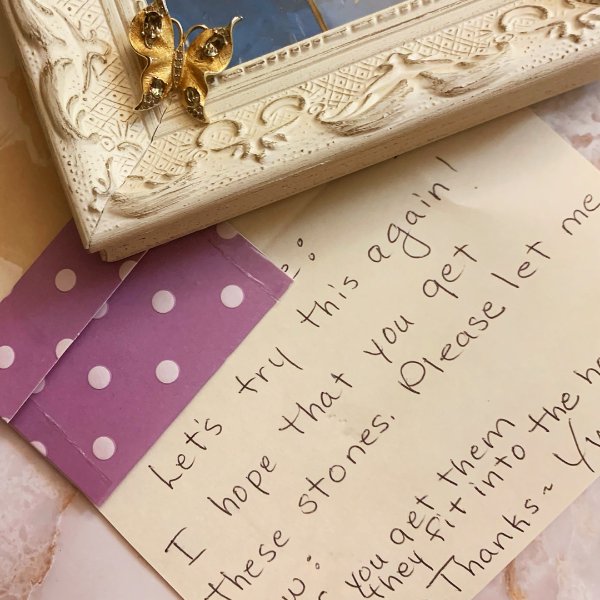 Let's try this again!
I hope that you get
these stones. Please let me
you get them
they fit into the
Thanks~